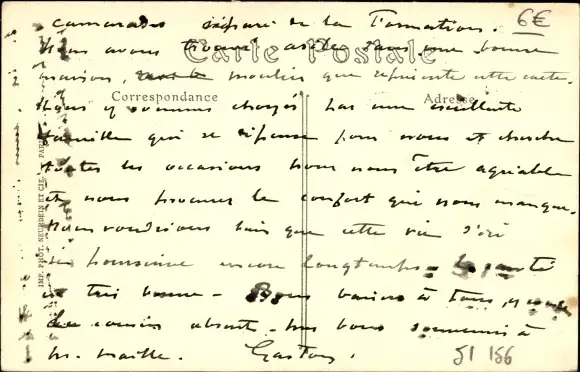 camarades séparé de la Formation. 6€
Nous avons trouvé asile dans une bonne
Carte Postale
maison, moulin que représente cette carte.
Correspondance Adresse
Nous y sommes choyés par une excellente
famille qui se dépense pour nous et cherche
toutes les occasions pour nous être agréable
et nous procurer le confort qui nous manque.
Nous voudrions bien que cette vie d'ici
se poursuive encore longtemps - La santé
est très bonne - Bons baisers à tous, y compris
les cousins absents. bons souvenirs à
M. Maille. Gaston.
51 156
IMP. PHOT. NEURDEIN ET CIE. PARIS